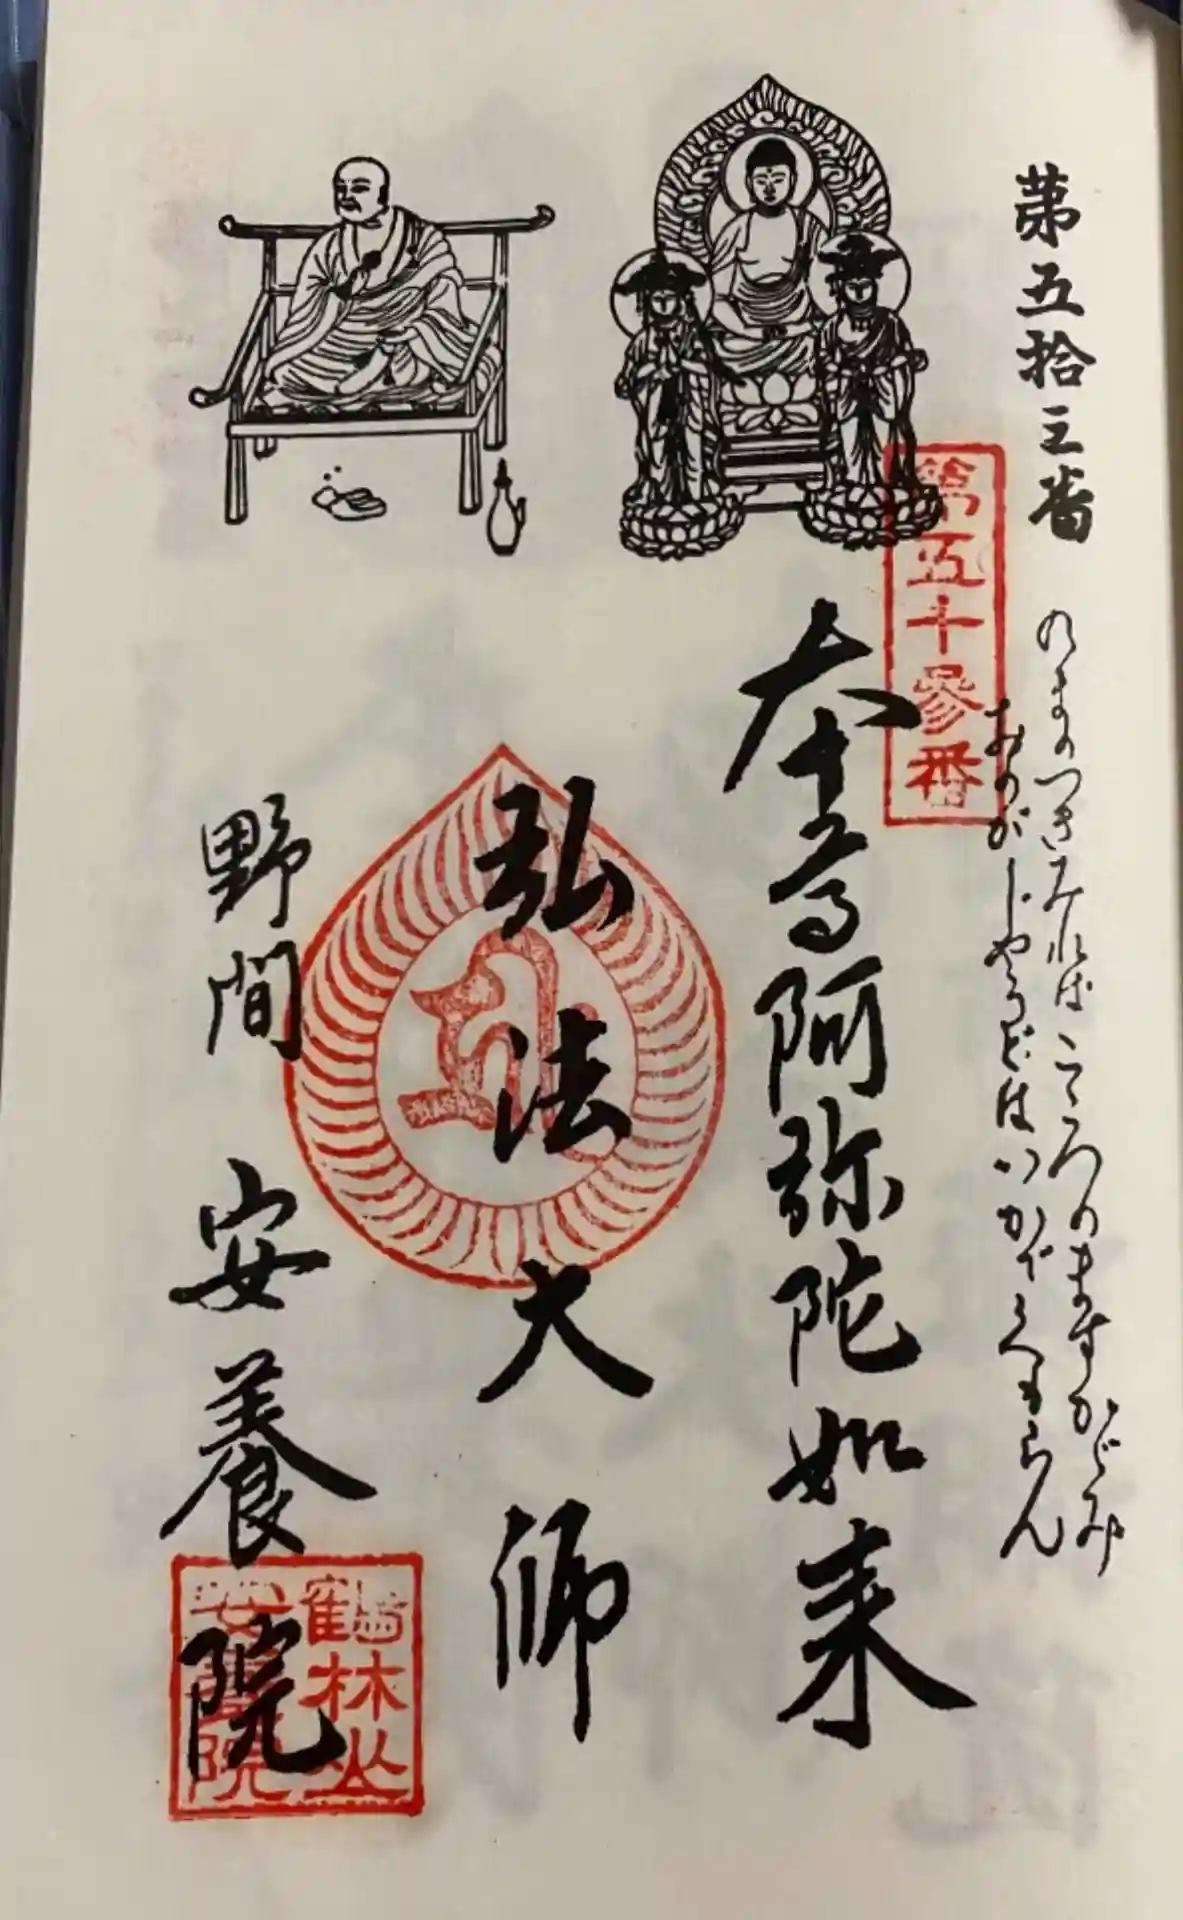 第五拾三番
のまのつきみればこころのますかがみ
おのがじやうどはいかでくもらん
第五十參番
本尊阿弥陀如来
弘法大師
野間 安養院
鶴林山
安養院